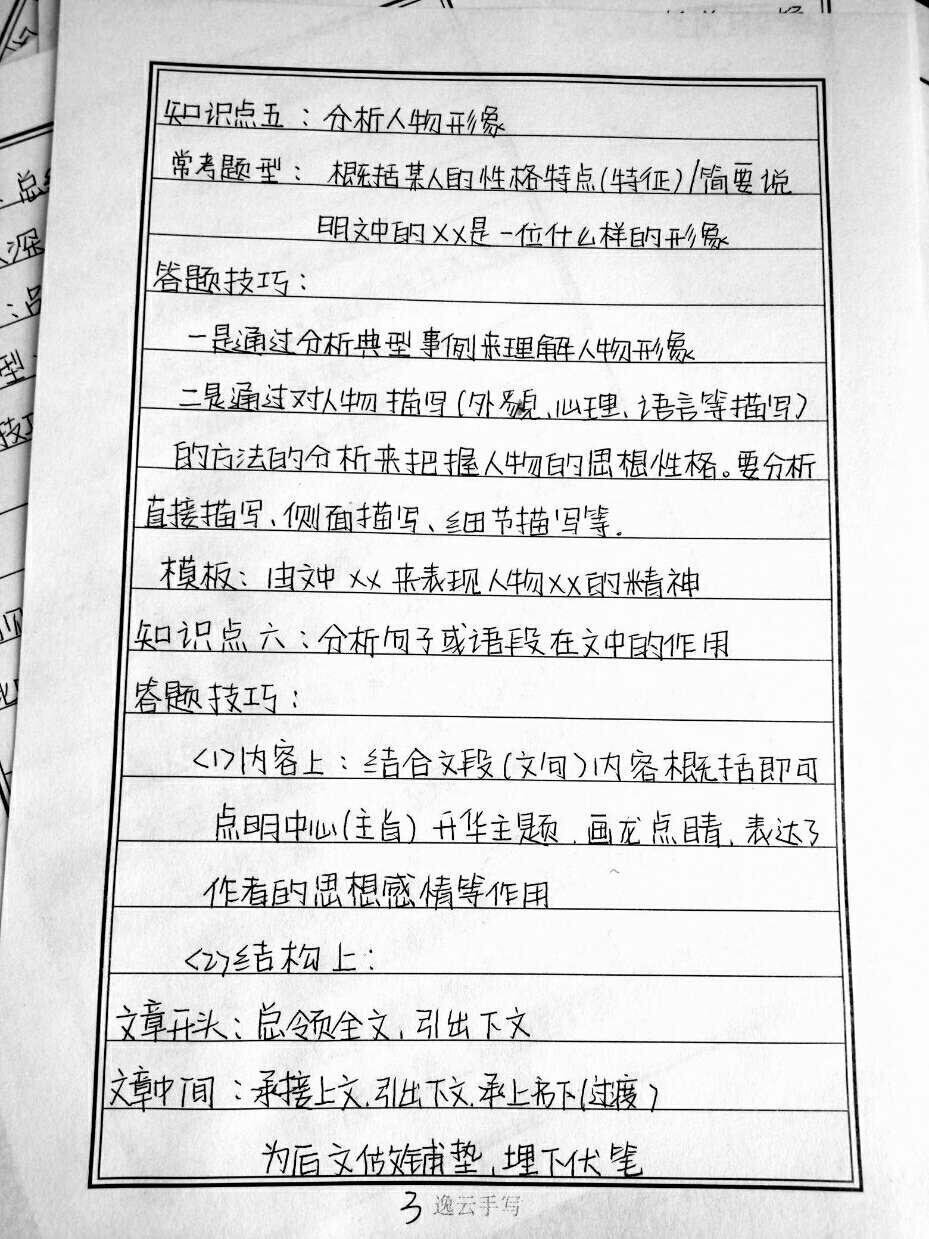 知识点五：分析人物形象
常考题型：概括某人的性格特点(特征)/简要说
明文中的XX是一位什么样的形象
答题技巧：
一是通过分析典型事例来理解人物形象
二是通过对人物描写(外貌、心理、语言等描写)
的方法的分析来把握人物的思想性格。要分析
直接描写、侧面描写、细节描写等.
模板：由文中XX来表现人物XX的精神
知识点六：分析句子或语段在文中的作用
答题技巧：
<1>内容上：结合文段(文句)内容概括即可
点明中心(主旨)开华主题、画龙点睛、表达了
作者的思想感情等作用
<2>结构上：
文章开头：总领全文、引出下文
文章中间：承接上文、引出下文、承上启下(过度)
为后文做铺垫、埋下伏笔
3 逸云手写